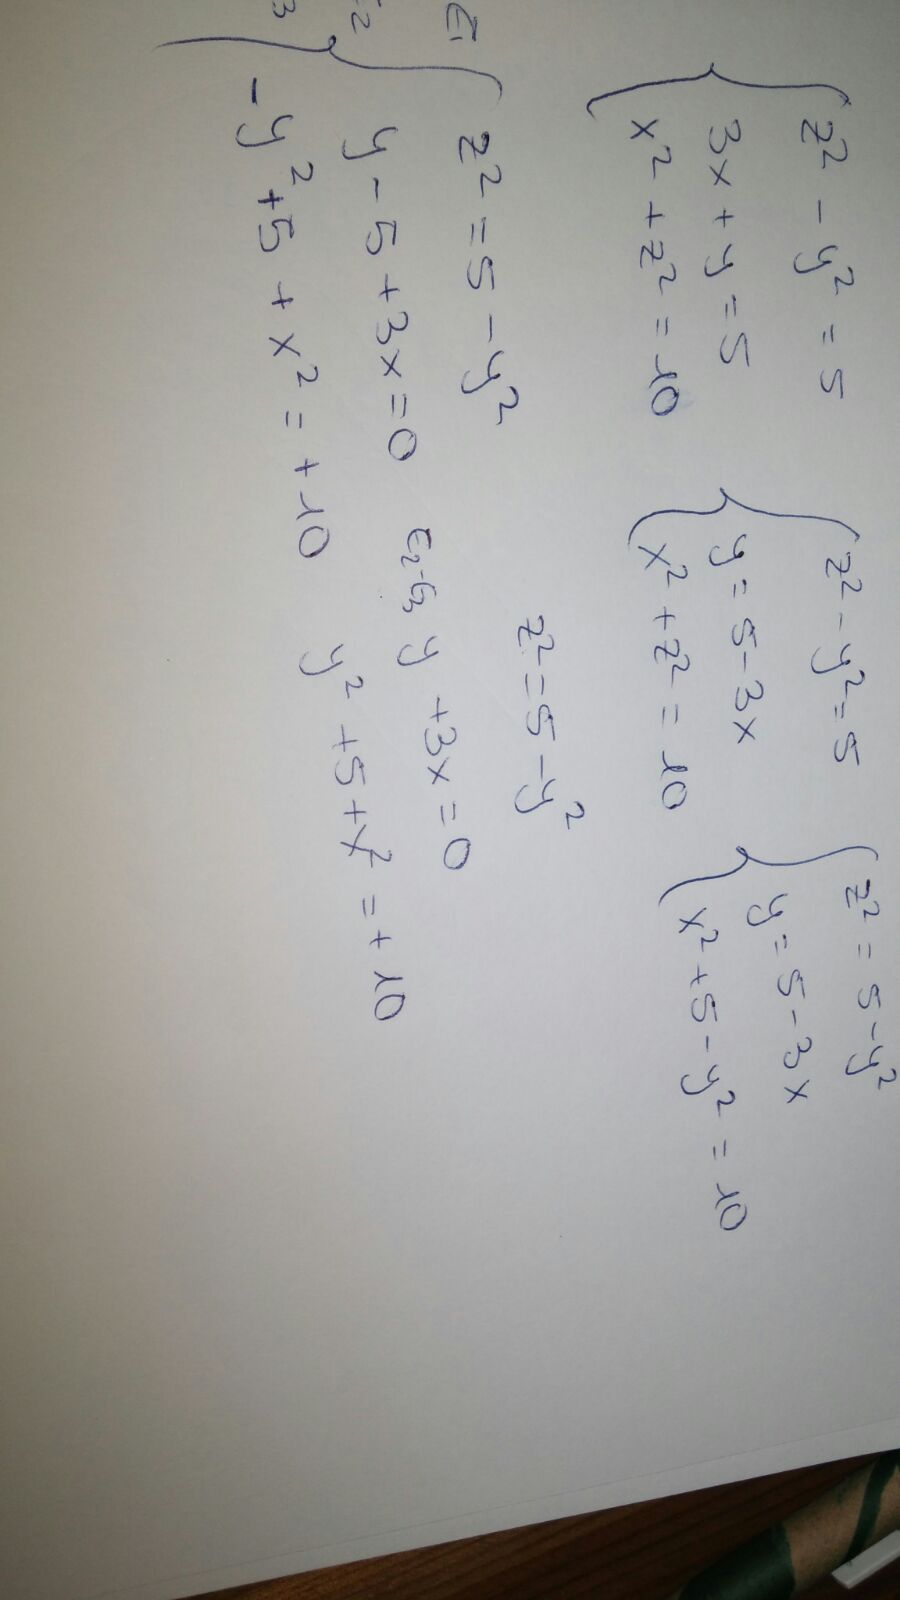 z² - y² = 5
3x + y = 5
x² + z² = 10
z² - y² = 5
y = 5 - 3x
x² + z² = 10
z² = 5 - y²
y = 5 - 3x
x² + 5 - y² = 10
E₁ z² = 5 - y²
E₂ y - 5 + 3x = 0
3 -y² + 5 + x² = +10
z² = 5 - y²
E₂-E₃ y + 3x = 0
y² + 5 + x² = +10